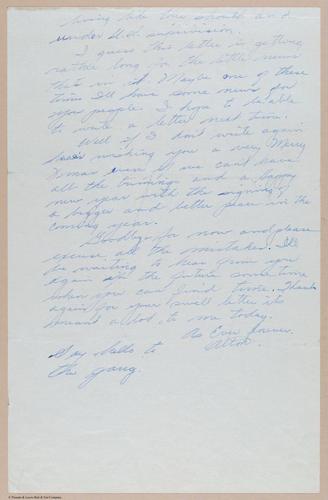 living like one should and
under U.S. supervision.
I guess this letter is getting
rather long for the little news
that's in it. Maybe one of these
times I'll have some news for
you people. I hope to be able
to write a letter next time.
Well if I don't write again
wishing you a very Merry
Xmas even if we can't have
all the trimmings and a happy
new year with the signing of
a bigger and better peace in the
coming year.
Goodbye for now and please
excuse all the mistakes. I'll
be waiting to hear from you
again in the future some time
when you can find time. Thanks
again for your swell letter it
meant a lot to me today.
As Ever forever
Alton.
Say hello to
the gang.